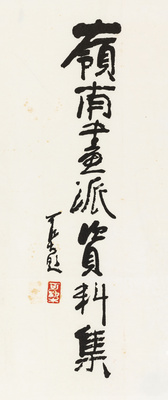 嶺南画派資料集